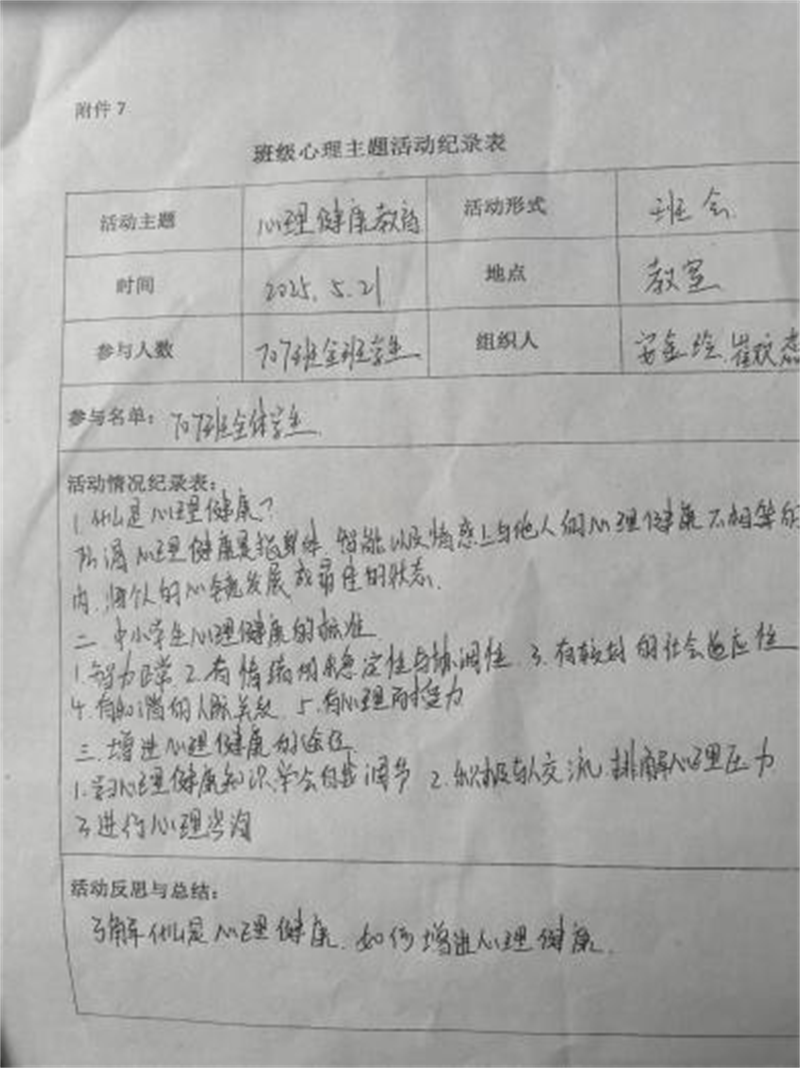 附件 7
班级心理主题活动纪录表
活动主题 心理健康教育 活动形式 班会
时间 2025.5.21 地点 教室
参与人数 707班全班学生 组织人
参与名单: 707班全体学生.
活动情况纪录表:
1. 什么是心理健康?
所谓心理健康是指身体、智能以及情感上与他人的心理健康不相等的
内、将个人的心境发展成最佳的状态.
二. 中小学生心理健康的标准
1. 智力正常 2. 有情绪的稳定性与协调性. 3. 有较好的社会适应性
4. 有和谐的人际关系 5. 有心理耐受力
三. 增进心理健康的途径
1. 学习心理健康知识,学会自我调节 2. 积极与人交流,排解心理压力
3 进行心理咨询
活动反思与总结:
了解什么是心理健康. 如何增进心理健康.